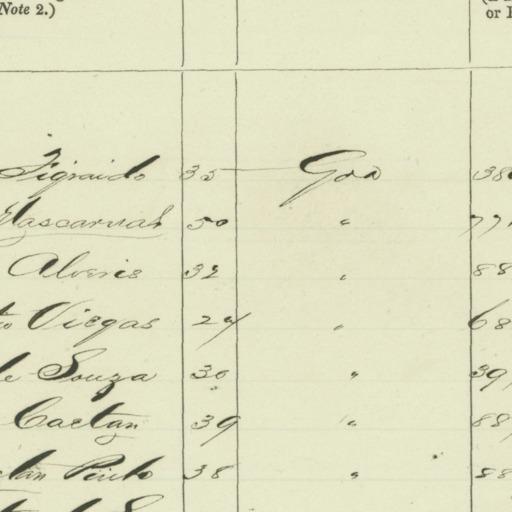 Note 2.)
or
Figraido 35 Goa 38
Mascarnah 50 " 77
Alveris 32 " 88
Viegas 24 " 68
Souza 30 " 39
Caetan 39 " 88
Pinto 38 " 88